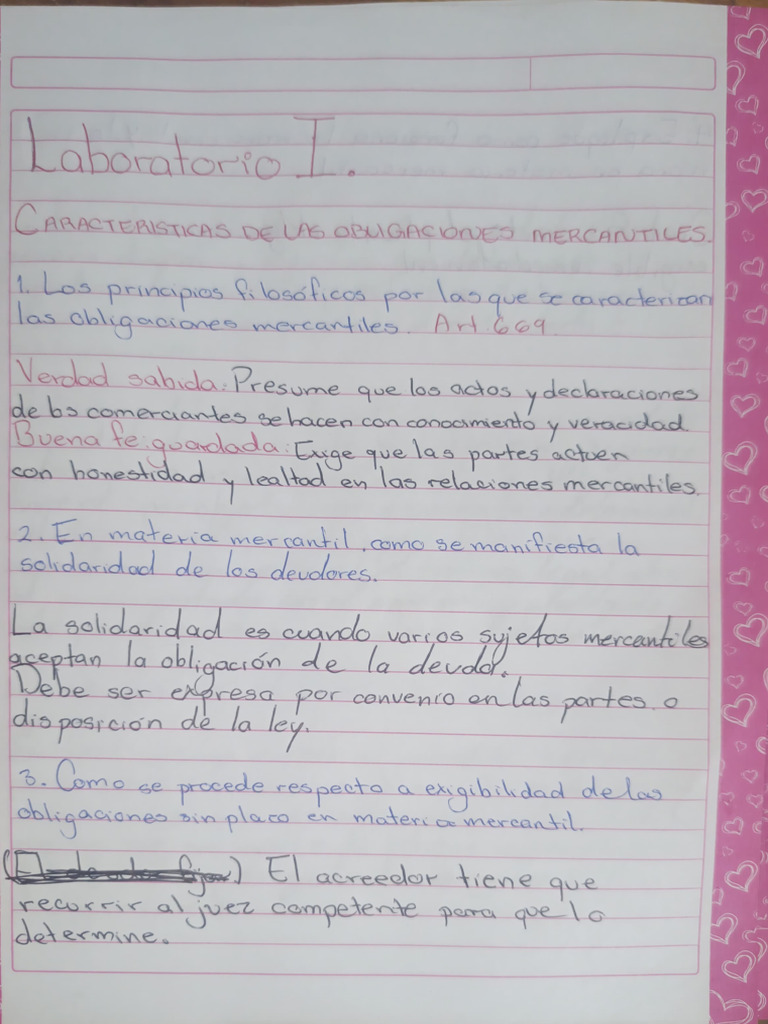 Laboratorio I.
CARACTERISTICAS DE LAS OBLIGACIONES MERCANTILES.
1. Los principios filosóficos por las que se caracterizan
las obligaciones mercantiles. Art. 669
Verdad sabida: Presume que los actos y declaraciones
de los comerciantes se hacen con conocimiento y veracidad.
Buena fe guardada: Exige que las partes actuen
con honestidad y lealtad en las relaciones mercantiles.
2. En materia mercantil, como se manifiesta la
solidaridad de los deudores.
La solidaridad es cuando varios sujetos mercantiles
aceptan la obligación de la deuda.
Debe ser expresa por convenio en las partes o
disposición de la ley.
3. Como se procede respecto a exigibilidad de las
obligaciones sin placo en materia mercantil.
El acreedor tiene que
recurrir al juez competente para que lo
determine.